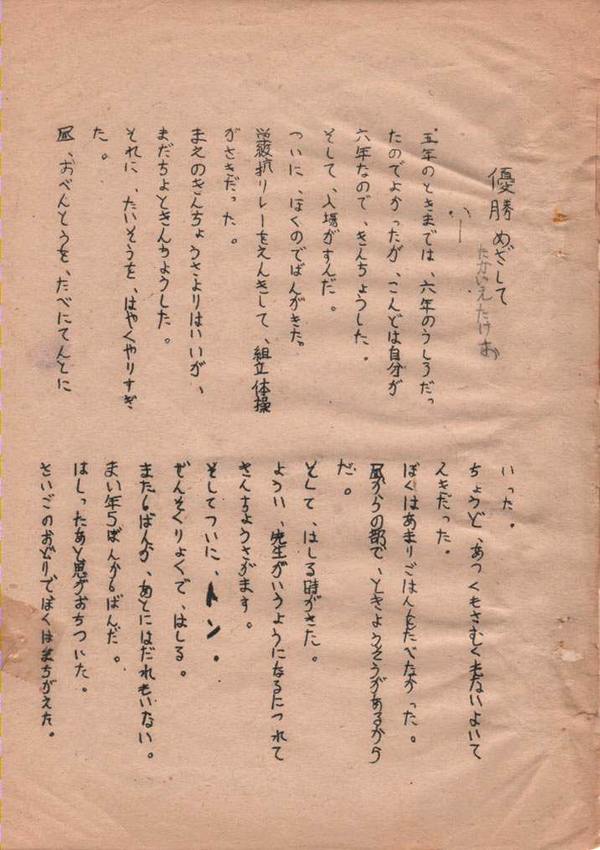 優勝めざして
六―一
たかいえたけお
五年のときまでは、六年のうしろだっ
たのでよかったが、こんどは自分が
六年なので、きんちょうした。
そして、入場がすんだ。
ついに、ぼくのでばんがきた。
学級対抗リレーをえんきして、組立体操
がさきだった。
まえのきんちょうさよりはいいが、
まだちょときんちょうした。
それに、たいそうを、はやくやりすぎ
た。
昼、おべんとうを、たべにてんとに
いった。
ちょうど、あつくもさむくもないよいて
んきだった。
ぼくはあまりごはんをたべなかった。
昼からの部で、ときょうそうがあるから
だ。
そして、はしる時がきた。
ようい、先生がいうようになるにつれて
きんちょうさがます。
そしてついに、トン。
ぜんそくりょくで、はしる。
また6ばんか、あとにはだれもいない。
まい年5ばんか6ばんだ。
はしったあと息がおちついた。
さいごのおどりでぼくはまちがえた。